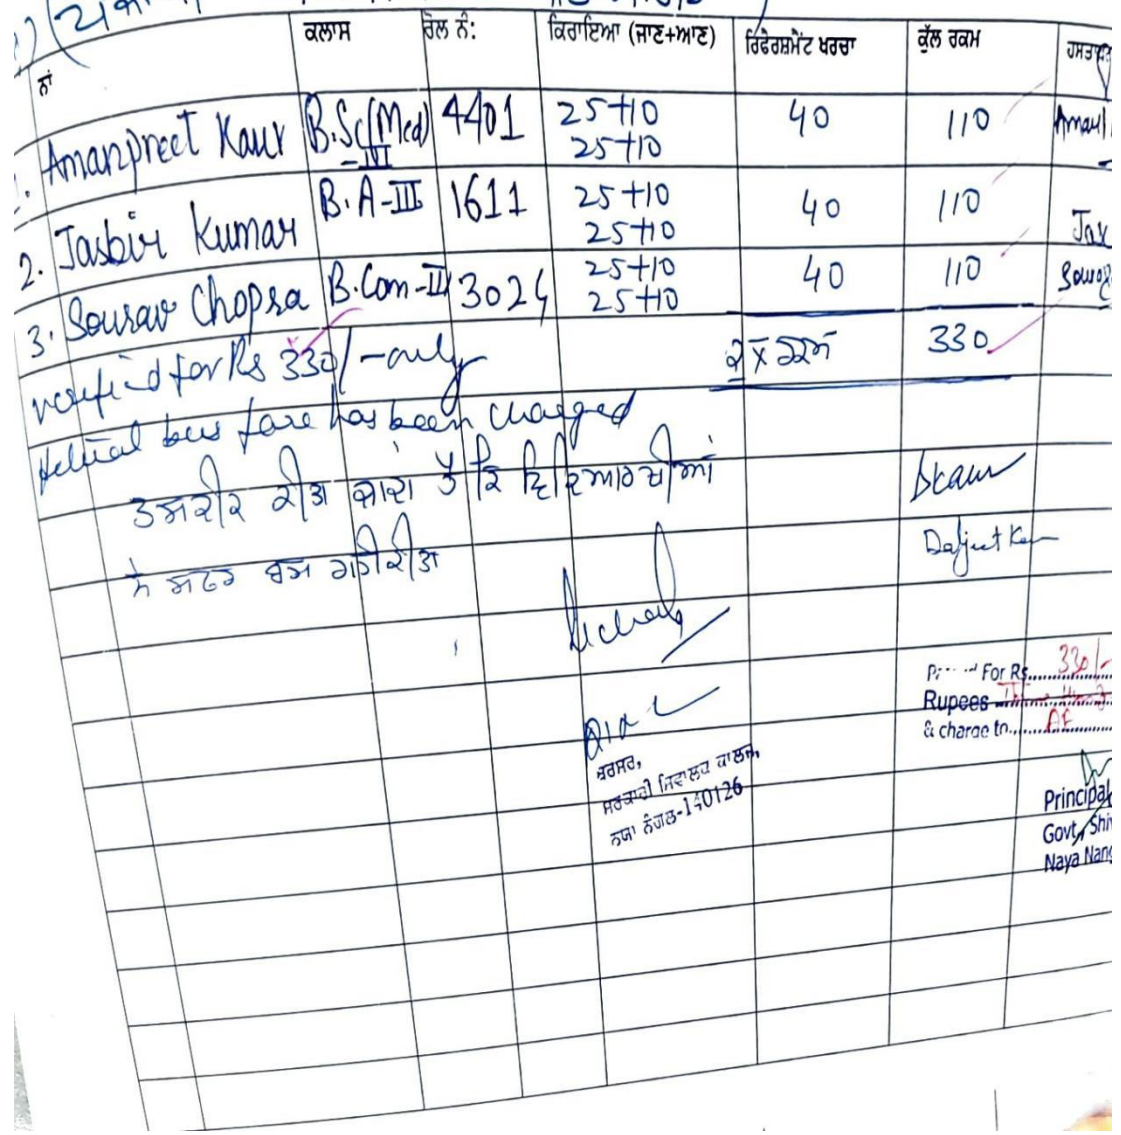 ਨਾਂ ਕਲਾਸ ਰੋਲ ਨੰ: ਕਿਰਾਇਆ (ਜਾਣ+ਆਣ) ਰਿਫਰੈਸ਼ਮੈਂਟ ਖਰਚਾ ਕੁੱਲ ਰਕਮ
1. Amanpreet Kaur B.Sc(Med) 4401 25+10 40 110
-III 25+10
2. Jasbir Kumar B.A-III 1611 25+10 40 110
25+10
3. Sourav Chopra B.Com-II 3024 25+10 40 110
25+10
330
verified for Rs 330/- only
Actual bus fare has been charged
ਤਸਦੀਕ ਕੀਤਾ ਜਾਂਦਾ ਹੈ ਕਿ ਵਿਦਿਆਰਥੀਆਂ
ਨੇ ਸਫਰ ਬਸ ਰਾਹੀਂ ਕੀਤਾ
Dkaur
Daljeet Kaur
For Rs. 330/-
Rupees
& charge to AF
ਬਰਸਰ,
ਸਰਕਾਰੀ ਸ਼ਿਵਾਲਕ ਕਾਲਜ,
ਨਯਾ ਨੰਗਲ-140126
Principal
Govt. Shiv
Naya Nang